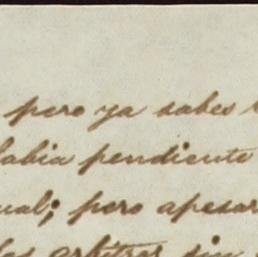 pero ya sabes
habia pendiente
ual; pero apesar
les arbitrar sin